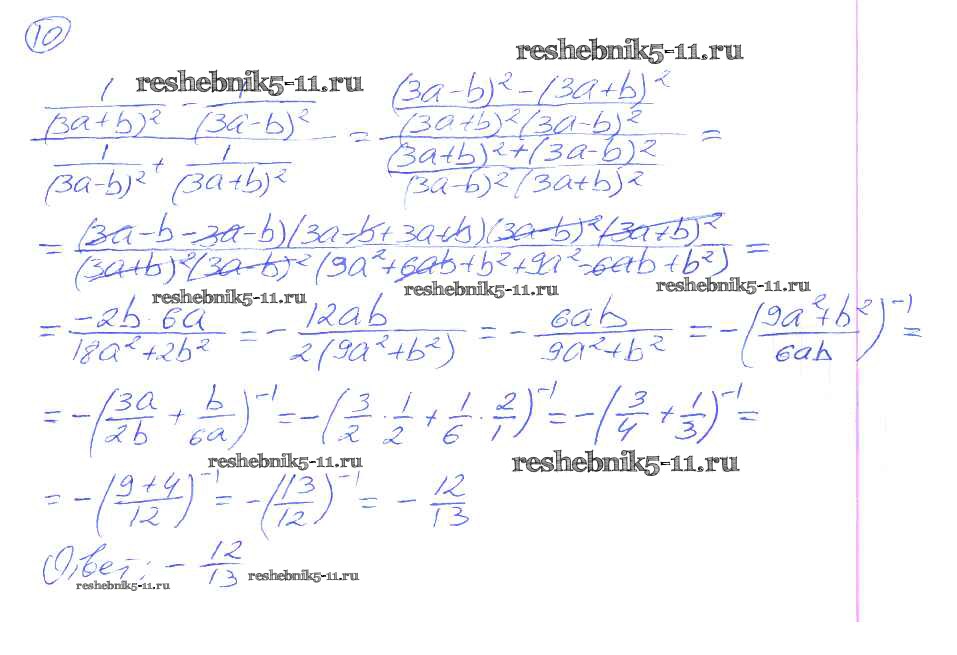 10
reshebnik5-11.ru
reshebnik5-11.ru
(1/(3a+b)² - 1/(3a-b)²) / (1/(3a-b)² + 1/(3a+b)²) = (((3a-b)² - (3a+b)²) / ((3a+b)²(3a-b)²)) / (((3a+b)² + (3a-b)²) / ((3a-b)²(3a+b)²)) =
= ((3a-b-3a-b)(3a-b+3a+b)(3a-b)²(3a+b)²) / ((3a+b)²(3a-b)²(9a²+6ab+b²+9a²-6ab+b²)) =
reshebnik5-11.ru reshebnik5-11.ru reshebnik5-11.ru
= (-2b·6a)/(18a²+2b²) = - 12ab/(2(9a²+b²)) = - 6ab/(9a²+b²) = -((9a²+b²)/6ab)⁻¹ =
= -(3a/2b + b/6a)⁻¹ = -(3/2 · 1/2 + 1/6 · 2/1)⁻¹ = -(3/4 + 1/3)⁻¹ =
reshebnik5-11.ru reshebnik5-11.ru
= -((9+4)/12)⁻¹ = -(13/12)⁻¹ = - 12/13
Ответ: - 12/13
reshebnik5-11.ru reshebnik5-11.ru